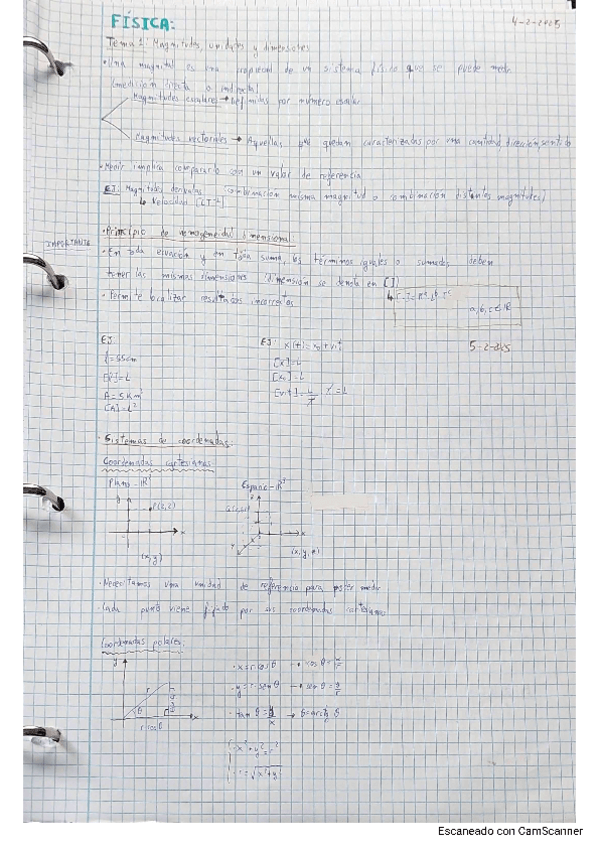 FÍSICA:
4-2-2025
Tema 1: Magnitudes, unidades y dimensiones
· Una magnitud es una propiedad de un sistema físico que se puede medir
(medición directa o indirecta)
Magnitudes escalares → Definidas por número escalar
Magnitudes vectoriales → Aquellas que quedan caracterizadas por una cantidad, dirección y sentido
· Medir implica compararlo con un valor de referencia
EJ: Magnitudes derivadas (combinación misma magnitud o combinación distintas magnitudes)
↳ Velocidad [LT⁻¹]
IMPORTANTE
· Principio de homogeneidad dimensional
· En toda ecuación y en toda suma, los términos iguales o sumados deben
tener las mismas dimensiones (dimensión se denota en [])
· Permite localizar resultados incorrectos
a, b, c ∈ ℝ
5-2-2025
EJ:
l = 55cm
[l] = L
A = 5 Km²
[A] = L²
EJ: x(t) = x₀ + v·t
[x] = L
[x₀] = L
[v·t] = L/T · T = L
· Sistemas de coordenadas:
Coordenadas cartesianas
Plano - ℝ²
Espacio - ℝ³
y
P(2,2)
x
(x, y)
(x, y, z)
· Necesitamos una unidad de referencia para poder medir
· Cada punto viene fijado por sus coordenadas cartesianas
Coordenadas polares:
y
r
θ
x
r·cosθ
· x = r·cosθ → cosθ = x/r
· y = r·senθ → senθ = y/r
· tanθ = y/x → θ = arctg θ
· x² + y² = r²
· r = √x²+y²
Escaneado con CamScanner